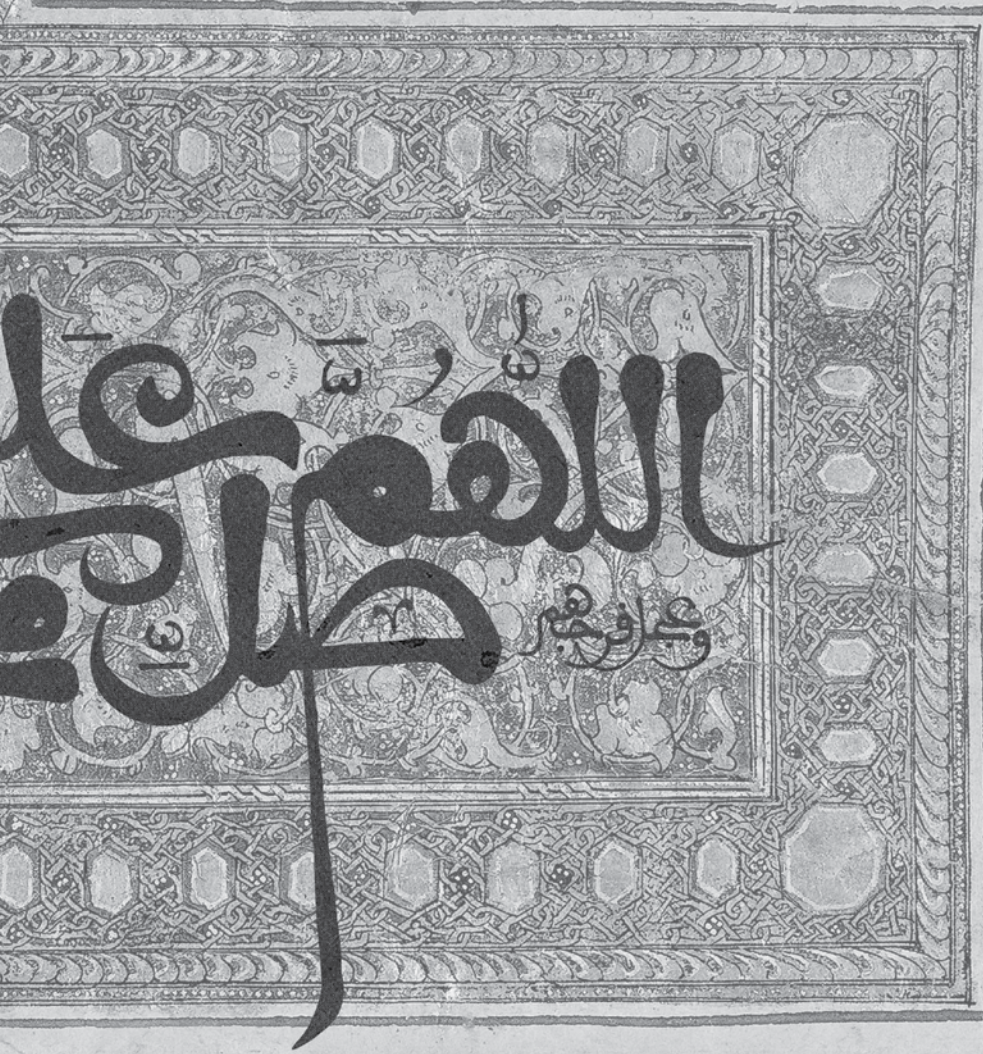 اللّٰهُمَّ
صلِّ
وعجل فرجهم